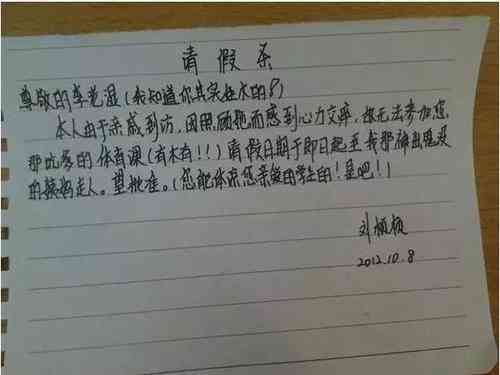 请假条
尊敬的李老湿(我知道你其实挺木的?)
本人由于亲戚到访,因照顾她而感到心力交瘁,故无法参加您
那坑爹的体育课(有木有!!)请假日期于即日起至我那神出鬼没
的姨妈走人。望批准。(您能体谅您亲爱的学生的!是吧!)
刘
2012.10.8